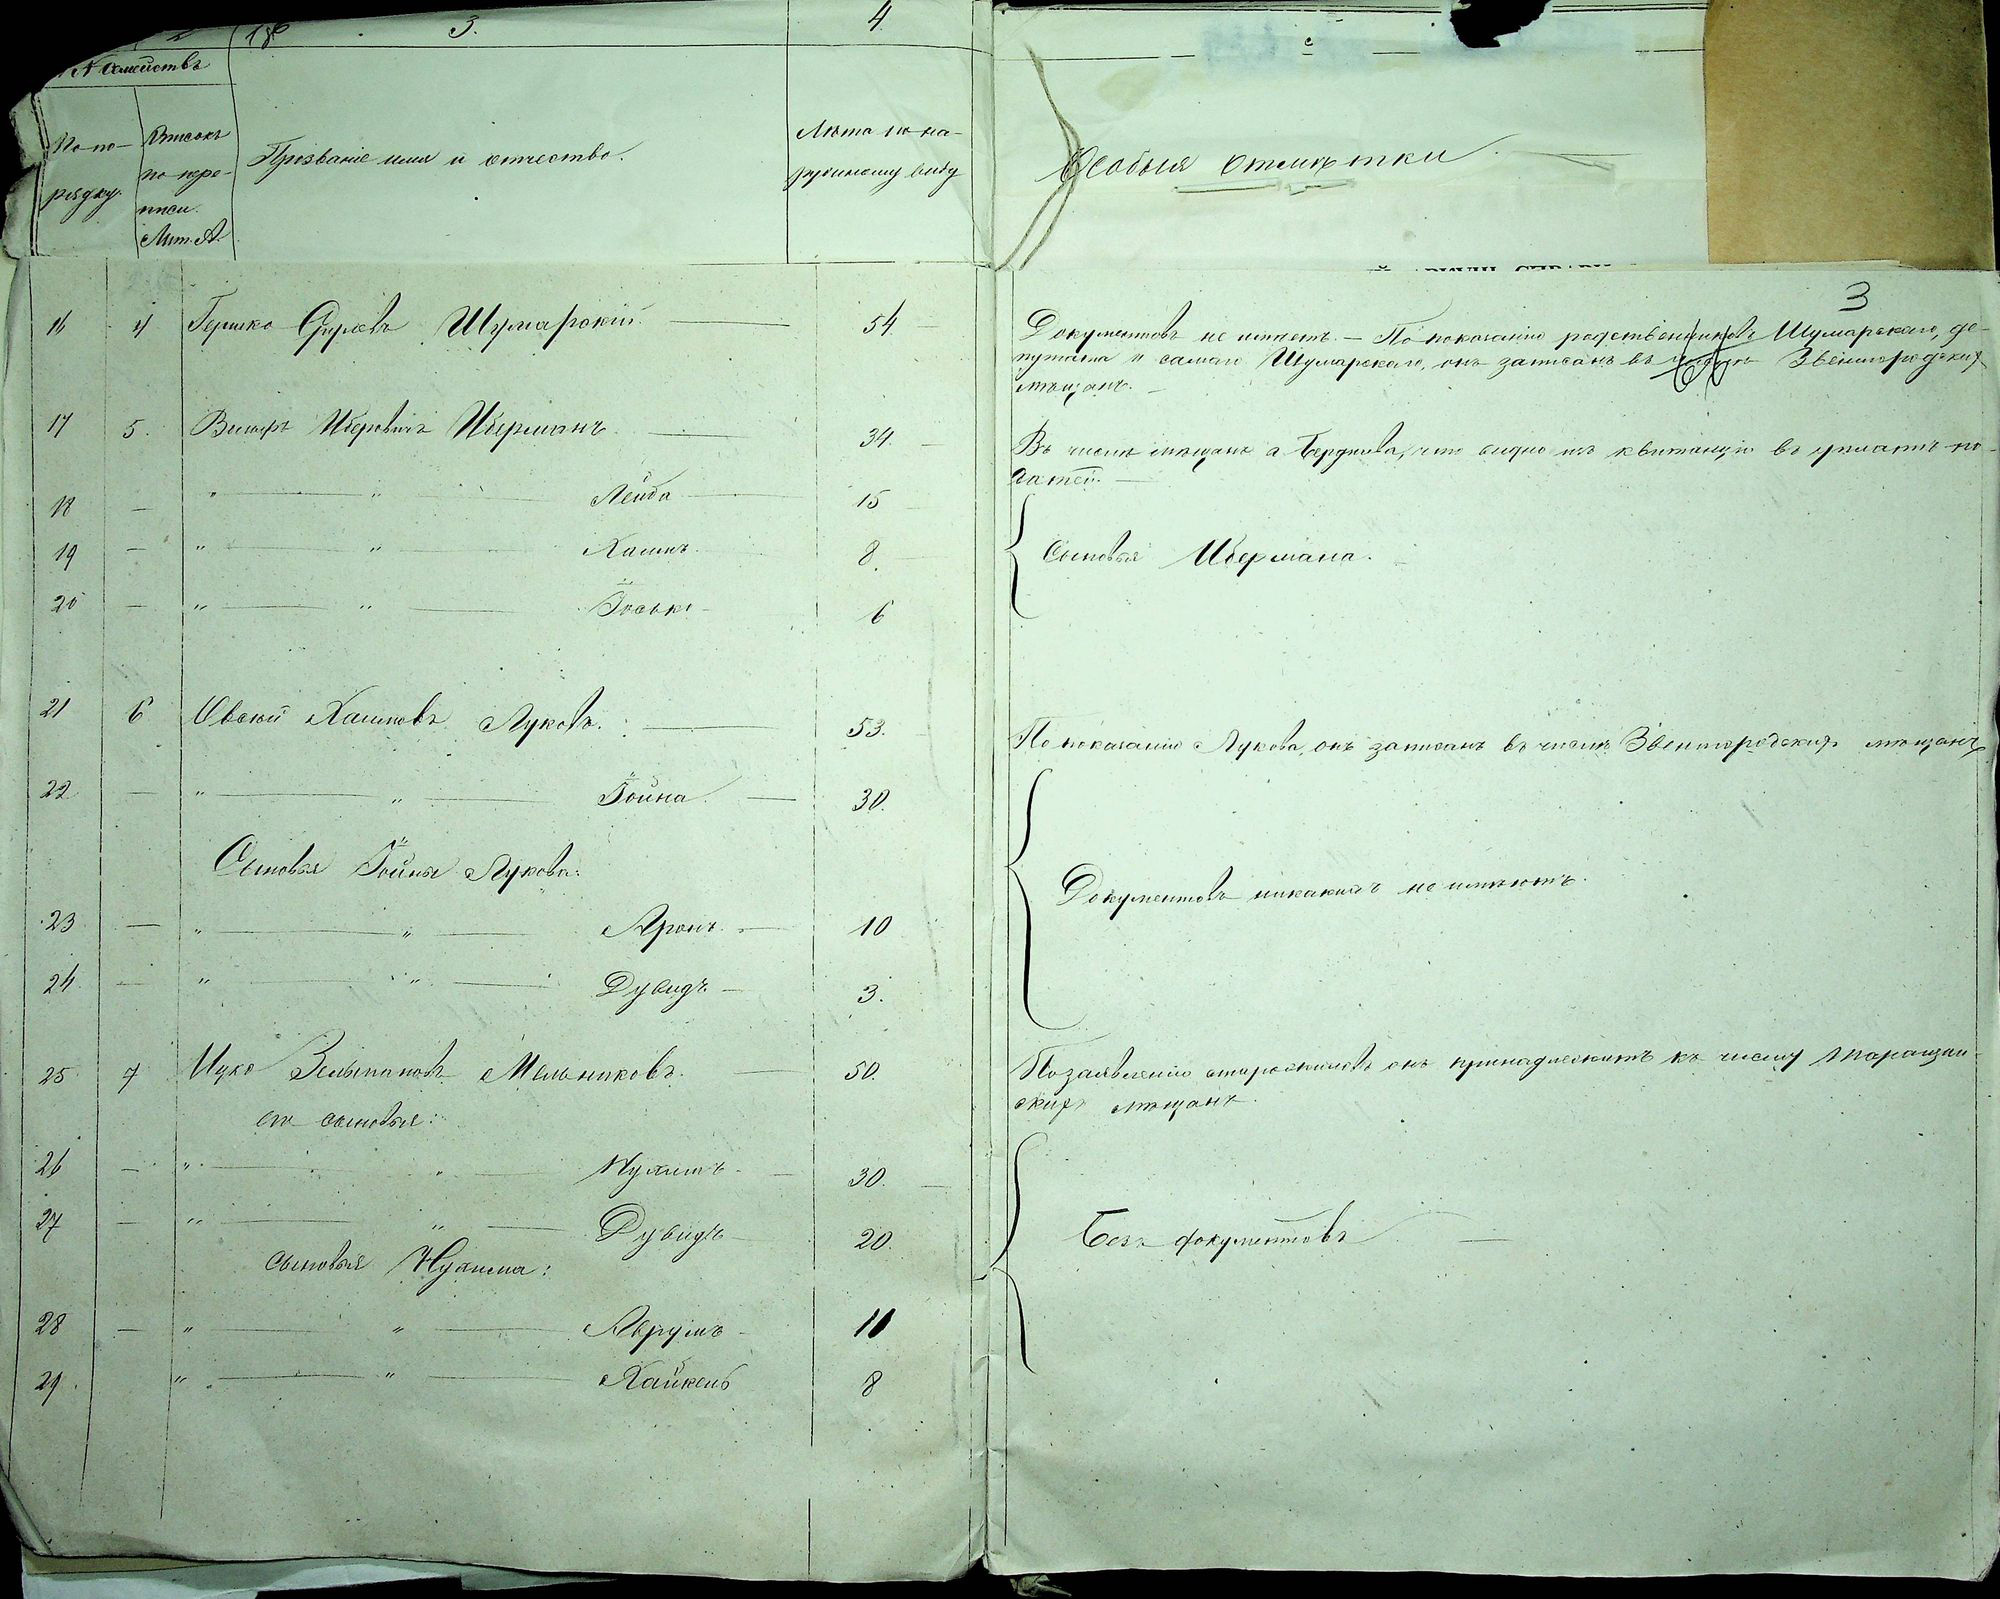 3. 4.
Семействъ
По по-
рядку.
Списокъ
по пере-
писи.
Лит. А.
Прозваніе имя и отчество.
Лѣта по на-
ружному виду
Особыя отмѣтки
3
16 4 Гершко Шумарскій 54
Документовъ не имѣетъ. — По показанію родственниковъ Шумарскаго, де-
путата и самаго Шумарскаго, онъ записанъ въ Звенигородскіе
мѣщане.
17 5. Иберовичъ Иберманъ 34
Въ числѣ мѣщанъ г. Бердичева, что видно изъ квитанціи въ уплатѣ по-
датей. —
18 — " " Лейба 15
19 — " " Хаимъ. 8.
20 — " " Іосько 6
Сыновья Ибермана.
21 6 Овсей Хаимовъ Луковъ. 53.
По показанію Лукова, онъ записанъ въ числѣ Звенигородскихъ мѣщанъ
22 — " " Іойна. 30.
Сыновья Іойны Лукова:
23 — " " Аронъ. 10
24 — " " Дувидъ 3.
Документовъ никакихъ не имѣютъ.
25 7 Ицко Мельниковъ. 50.
По заявленію старожиловъ онъ принадлежитъ къ числу Таращан-
скихъ мѣщанъ.
его сыновья:
26 — " " Нухимъ 30.
27 — " " Дувидъ 20.
сыновья Нухима:
28 — " " Аврумъ
29 " " Хайкель 8
Безъ документовъ